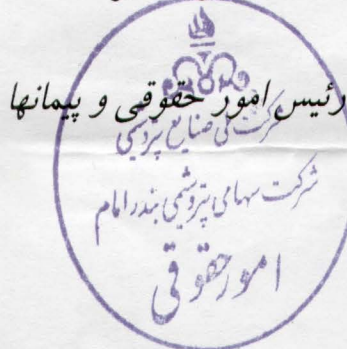 رئیس امور حقوقی و پیمانها
شرکت ملی صنایع پتروشیمی
شرکت سهامی پتروشیمی بندر امام
امور حقوقی